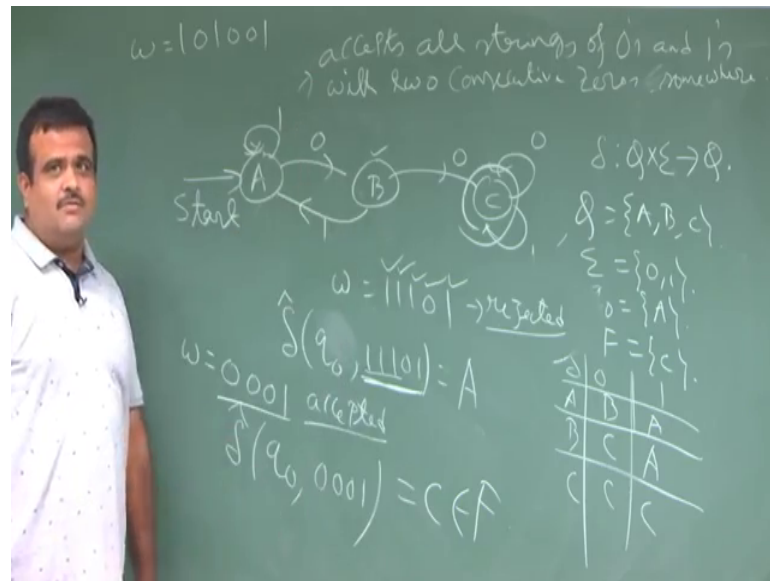 w = 101001
accepts all strings of 0's and 1's
with two consecutive zeros somewhere.
1
0
0
0
Start
A
B
C
1
1
δ : Q×Σ → Q.
Q = {A, B, C}
Σ = {0, 1}.
q0 = {A}.
F = {C}.
w = 11101 → rejected
δ̂(q0, 11101) = A
w = 0001 accepted
δ̂(q0, 0001) = C ∈ F
δ 0 1
A B A
B C A
C C C